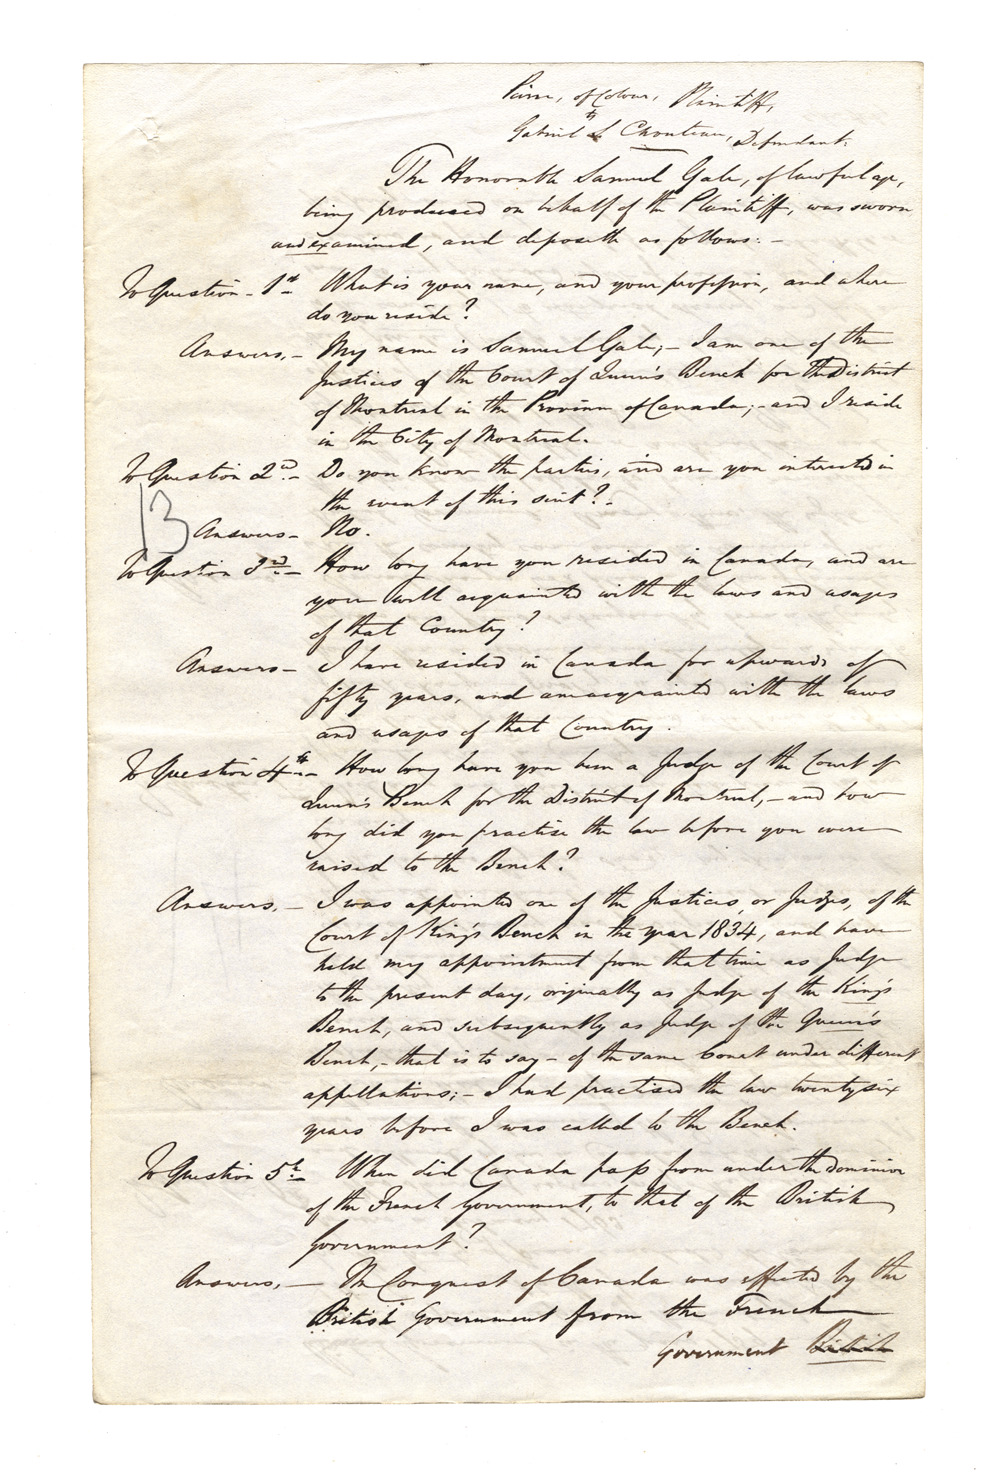 Pierre, of Colour, Plaintiff,
Gabriel S. Chouteau, Defendant.
The Honorable Samuel Gale, of lawful age,
being produced on behalf of the Plaintiff, was sworn
and examined, and deposeth as follows:-
To Question - 1st- What is your name, and your profession, and where
do you reside?
Answers,- My name is Samuel Gale;- I am one of the
Justices of the Court of Queen's Bench for the District
of Montreal in the Province of Canada;- and I reside
in the City of Montreal.
To Question 2d.- Do you know the parties, and are you interested in
the event of this suit?-
13
Answers- No.
To Question 3rd.- How long have you resided in Canada, and are
you well acquainted with the laws and usages
of that Country?
Answers- I have resided in Canada for upwards of
fifty years, and am acquainted with the laws
and usages of that Country.
To Question 4th.- How long have you been a Judge of the Court of
Queen's Bench for the District of Montreal,- and how
long did you practise the law before you were
raised to the Bench?
Answers,- I was appointed one of the Justices, or Judges, of the
Court of King's Bench in the year 1834, and have
held my appointment from that time as Judge
to the present day, originally as Judge of the King's
Bench, and subsequently as Judge of the Queen's
Bench,- that is to say- of the same Court under different
appellations;- I had practised the law twenty six
years before I was called to the Bench.
To Question 5th- When did Canada pass from under the dominion
of the French Government, to that of the British
Government?
Answers,- The Conquest of Canada was effected by the
British Government from the French
Government British